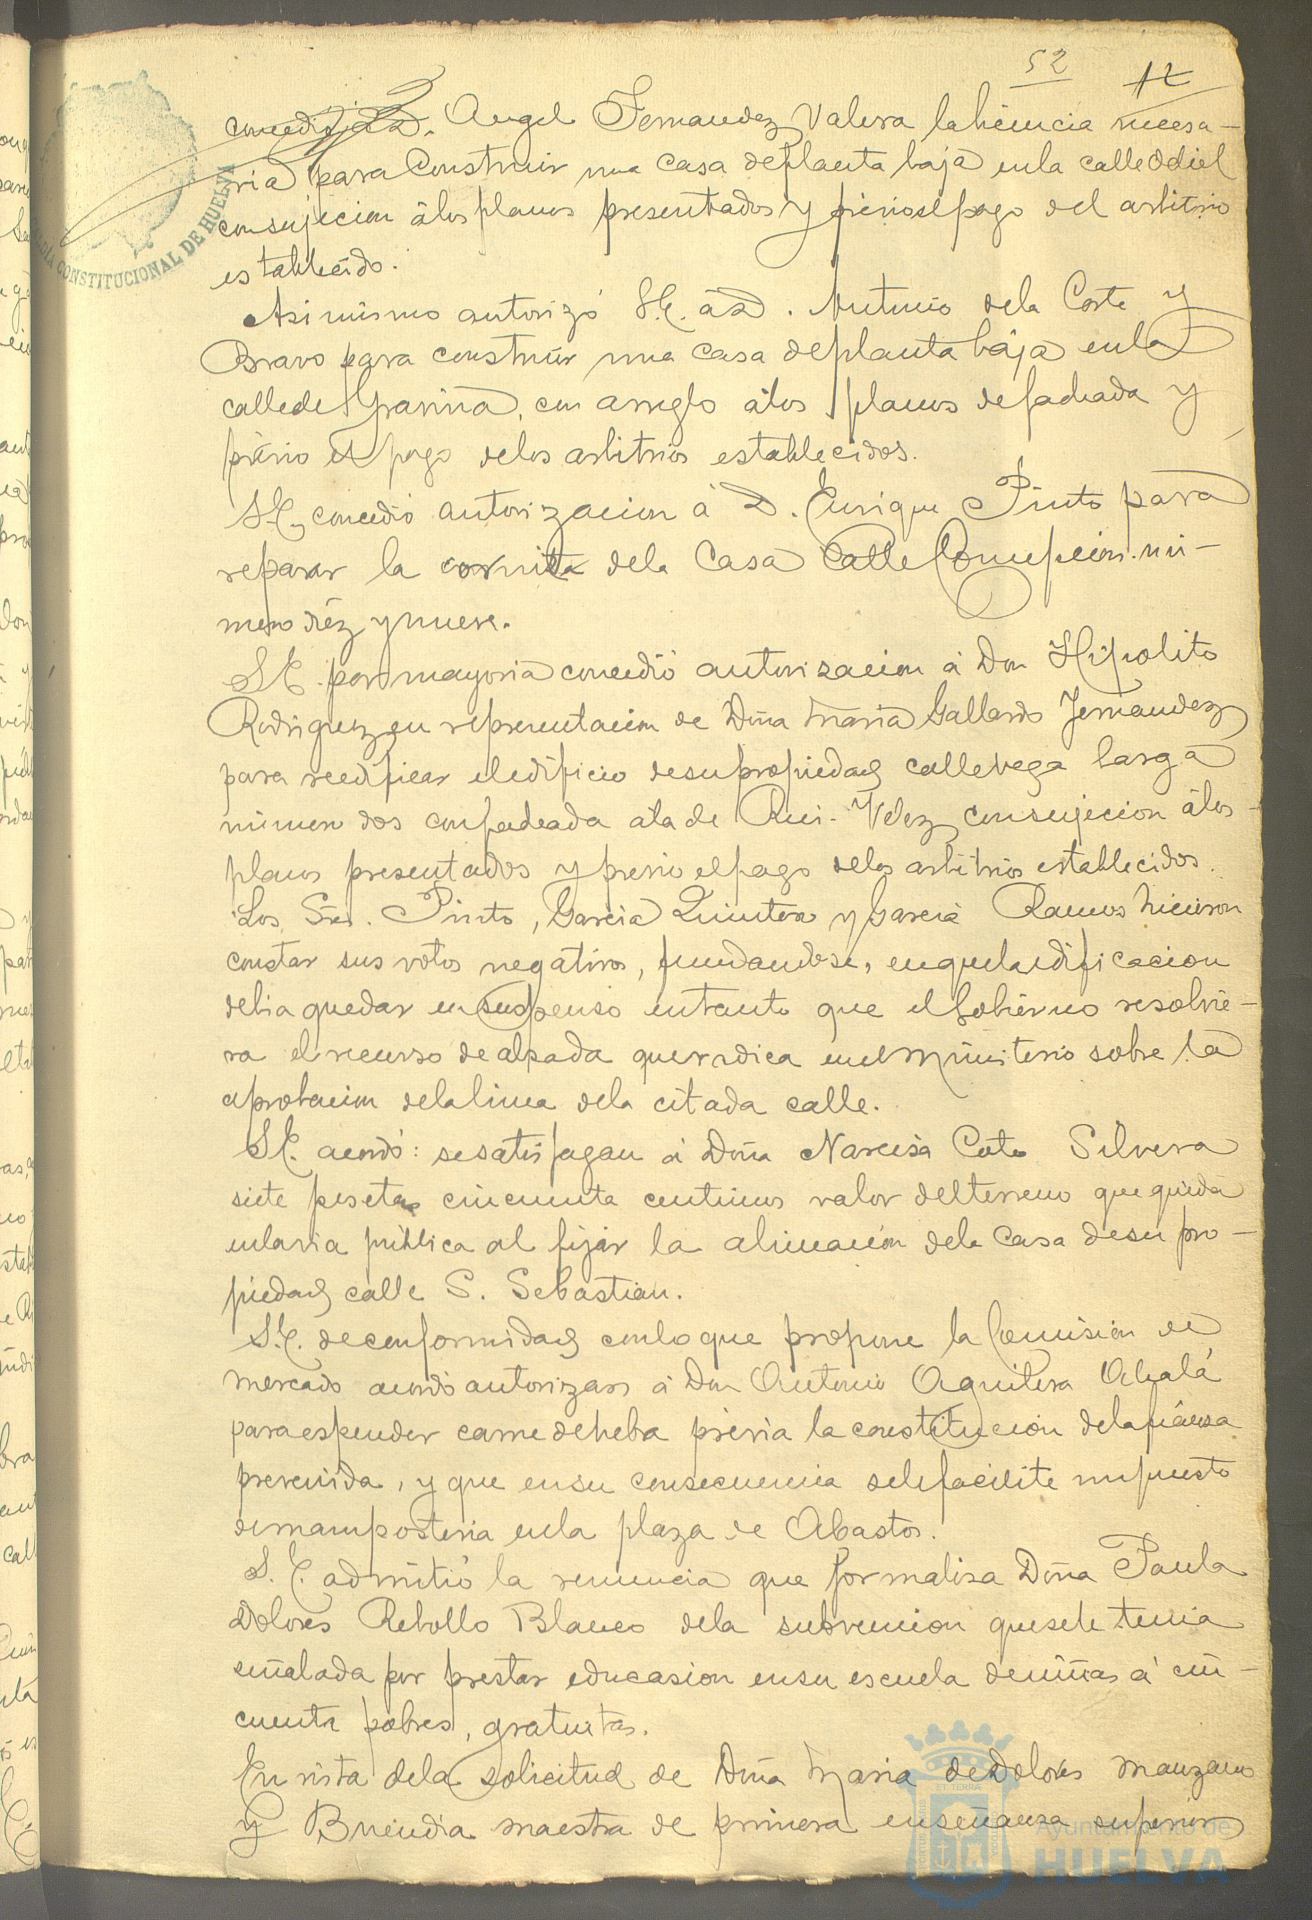 52 12
concedió á D. Angel Fernandez Valera la licencia necesa-
ria para Construir una casa de planta baja en la calle Odiel
con sujecion á los planos presentados y prévio el pago del arbitrio
establecido.
Asi mismo autorizó S.E. á D. Antonio de la Corte y
Bravo para construir una casa de planta baja en la
calle de Gravina, con arreglo á los planos de fachada y
prévio el pago de los arbitrios establecidos.
S.E. concedió autorizacion á D. Enrique Pinto para
reparar la cornisa de la Casa Calle Concepcion nú-
mero diez y nueve.
S.E. por mayoria concedió autorizacion á Don Hipolito
Rodriguez en representacion de Doña Maria Gallardo Fernandez
para reedificar el edificio de su propiedad calle vega larga
número dos con fachada a la de Rui-Velez con sujecion á los
planos presentados y previo el pago de los arbitrios establecidos.
Los Sres. Pinto, Garcia Quintero y Garcia Ramos hicieron
constar sus votos negativos, fundandose, en que la edificacion
debia quedar en suspenso entanto que el Gobierno resolvie-
ra el recurso de alzada que radica en el Ministerio sobre la
aprobacion de la linea de la citada calle.
S.E. acordó: se satisfagan á Doña Narcisa Coto Silvera
siete pesetas cincuenta centimos valor del terreno que queda
en la via pública al fijar la alineación de la Casa de su pro-
piedad calle S. Sebastian.
S.E. de conformidad con lo que propone la Comision de
mercado acordó autorizar á Don Antonio Aguilera Alcalá
para espender carne de hebra prévia la constitucion de la fianza
prevenida, y que en su consecuencia se le facilite un puesto
de mamposteria en la plaza de Abastos.
S.E. admitió la renuncia que formaliza Doña Paula
Dolores Rebollo Blanco de la subvencion que se le tenia
señalada por prestar educasion en su escuela de niñas á cin-
cuenta pobres, gratuitas.
En vista de la solicitud de Doña Maria de Dolores Manzano
y Buendia maestra de primera enseñanza superior
CONSTITUCIONAL DE HUELVA
Ayuntamiento de
HUELVA